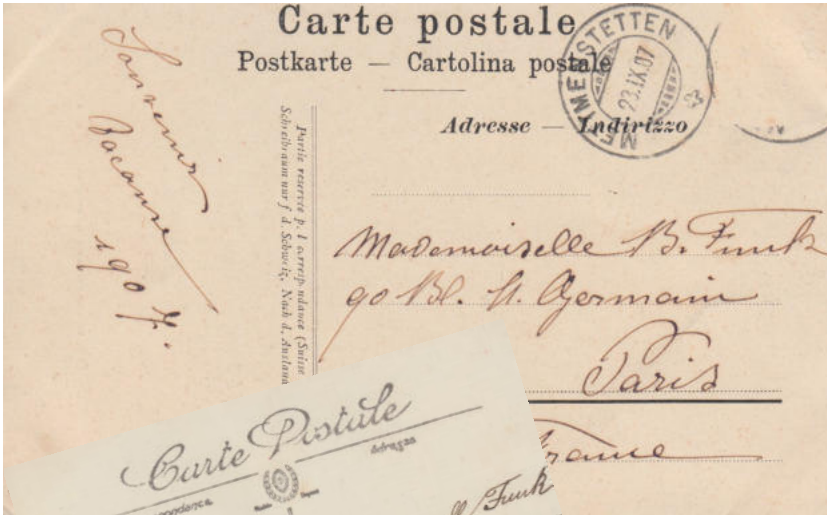 Carte postale
Postkarte — Cartolina postale
Adresse — Indirizzo
METTMENSTETTEN
23.IX.07
Souvenir
Vacance
1907.
Partie reservée p. l corresp ndance (Suisse
Schreibraum nur f d. Schweiz. Nach d. Ausland
Mademoiselle B. Funk
90 Bl. St. Germain
Paris
France
Carte Postale
Adresse
Funk